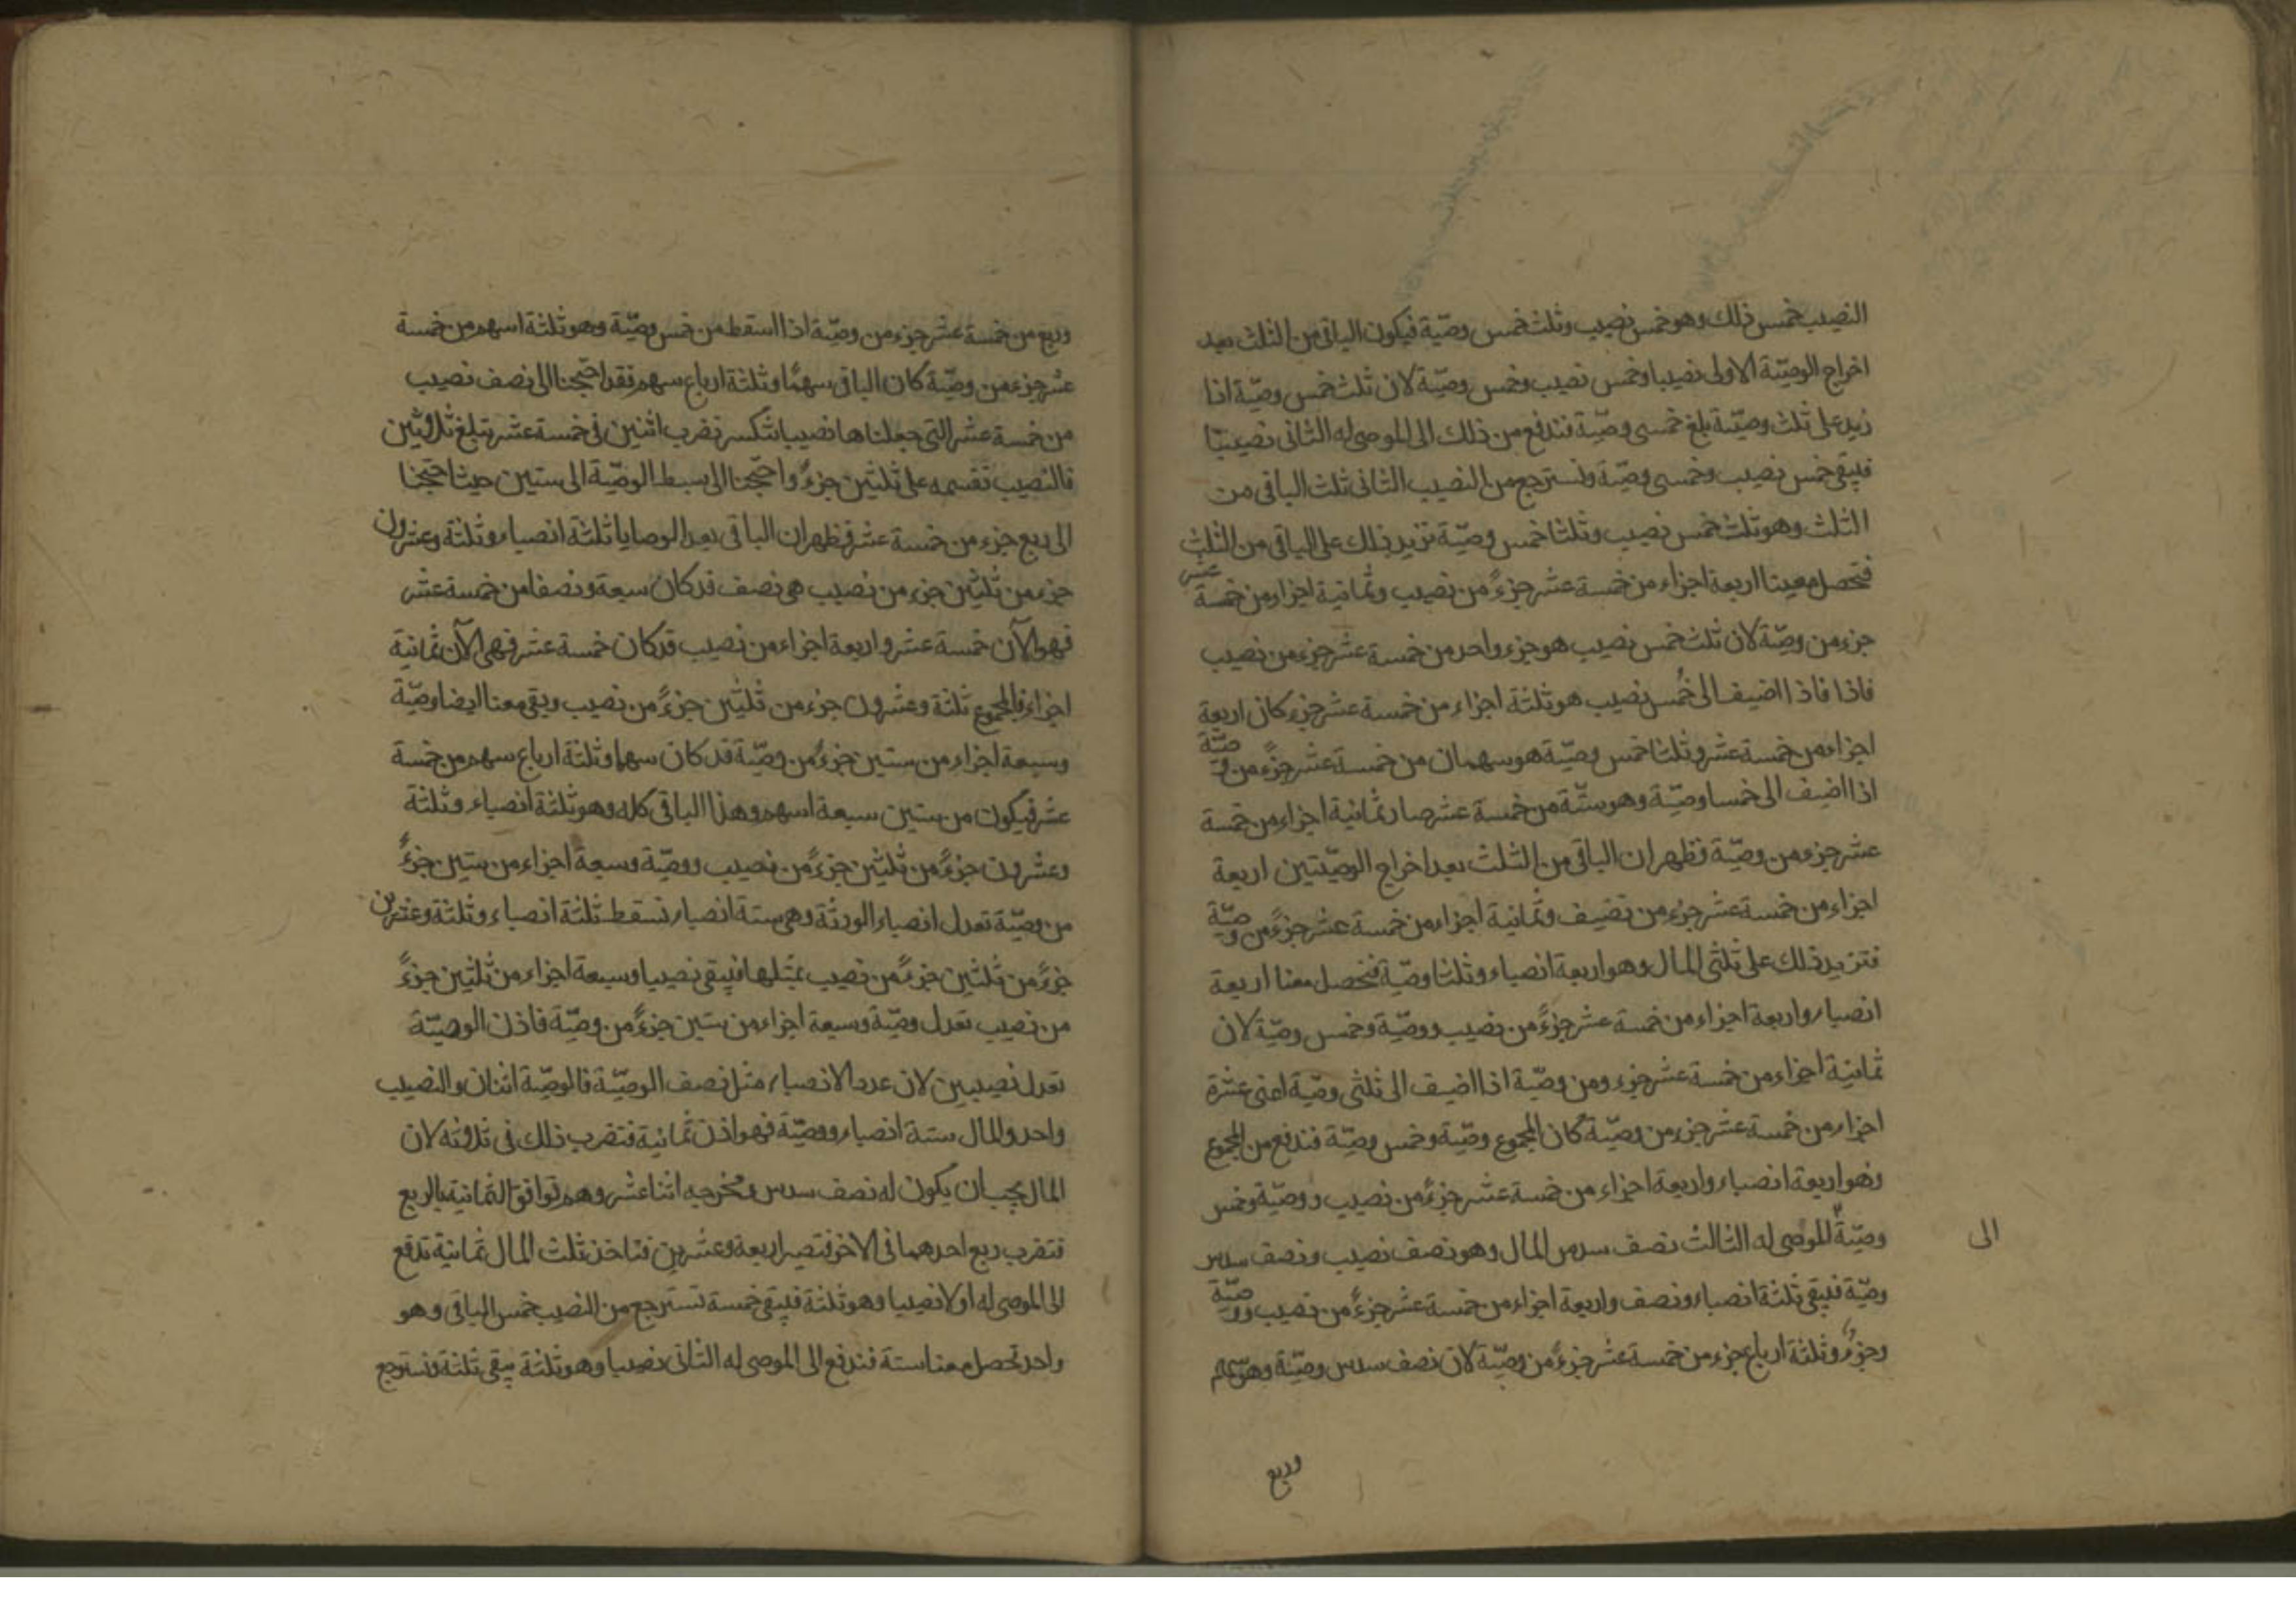 النصيب خمس ذلك وهو خمس نصيب وثلث خمس وصيّة فيكون الباقى من الثلث بعد
اخراج الوصيّة الاولى نصيبا وخمس نصيب وخمس وصيّة لان ثلث خمس وصيّة اذا
زيد على ثلث وصيّة بلغ خمسى وصيّة فندفع من ذلك الى الموصى له الثانى نصيبا
فيبقى خمس نصيب وخمسى وصيّة ونسترجع من النصيب الثانى ثلث الباقى من
الثلث وهو ثلث خمس نصيب وثلثا خمس وصيّة نزيد ذلك على الباقى من الثلث
فتحصل معينا اربعة اجزاء من خمسة عشر جزءً من نصيب وثمانية اجزاء من خمسة عشر
جزء من وصيّة لان ثلث خمس نصيب هو جزء واحد من خمسة عشر جزء من نصيب
فاذا فاذا اضيف الى خُمس نصيب هو ثلثة اجزاء من خمسة عشر جزء كان اربعة
اجزاء من خمسة عشر وثلثا خمس وصيّة هو سهمان من خمسة عشر جزءً من وصيّة
اذا اضيف الى خمسا وصيّة وهو ستّة من خمسة عشر صار ثمانية اجزاء من خمسة
عشر جزء من وصيّة فظهر ان الباقى من الثلث بعد اخراج الوصيّتين اربعة
اجزاء من خمسة عشر جزء من نصيف وثمانية اجزاء من خمسة عشر جزءً من وصيّة
فتزيد ذلك على ثلثى المال وهو اربعة انصباء وثلثا وصيّة فتحصل معنا اربعة
انصباء واربعة اجزاء من خمسة عشر جزءً من نصيب ووصيّة وخمس وصيّة لان
ثمانية اجزاء من خمسة عشر جزء ومن وصيّة اذا اضيف الى ثلثى وصيّة اعنى عشرة
اجزاء من خمسة عشر جزء من وصيّة كان المجموع وصيّة وخمس وصيّة فندفع من المجموع
وهو اربعة انصباء واربعة اجزاء من خمسة عشر جزءً من نصيب ووصيّة وخمس
وصيّة للموصى له الثالث نصف سدس المال وهو نصف نصيب ونصف سدس
الى
وصيّة فيبقى ثلثة انصباء ونصف واربعة اجزاء من خمسة عشر جزءً من نصيب ووصيّة
وجزءٌ وثلثة ارباع جزء من خمسة عشر جزءً من وصيّة لان نصف سدس وصيّة وهو سهم
وربع
وربع من خمسة عشر جزء من وصيّة اذا اسقط من خمس وصيّة وهو ثلثة اسهم من خمسة
عشر جزء من وصيّة كان الباقى سهمًا وثلثة ارباع سهم فقد احتجنا الى نصف نصيب
من خمسة عشر التى جعلناها نصيبا تنكسر نضرب اثنين فى خمسة عشر تبلغ ثلاثين
فالنصيب نقسمه على ثلثين جزءً واحتجنا الى بسط الوصيّة الى ستين حيث احتجنا
الى ربع جزء من خمسة عشر فظهر ان الباقى بعد الوصايا ثلثة انصباء وثلثة وعشرون
جزء من ثلثين جزء من نصيب هى نصف قد كان سبعة ونصفا من خمسة عشر
فهو الآن خمسة عشر واربعة اجزاء من نصيب قد كان خمسة عشر فهى الآن ثمانية
اجزاء فالمجموع ثلثة وعشرون جزء من ثلثين جزءً من نصيب ويبقى معنا ايضا وصيّة
وسبعة اجزاء من ستين جزءً من وصيّة قد كان سهما وثلثة ارباع سهم من خمسة
عشر فيكون من ستين سبعة اسهم وهذا الباقى كله وهو ثلثة انصباء وثلثة
وعشرون جزءً من ثلثين جزءً من نصيب ووصيّة وسبعة اجزاء من ستين جزءً
من وصيّة تعدل انصباء الورثة وهى ستة انصباء نسقط ثلثة انصباء وثلثة وعشرين
جزءً من ثلثين جزءً من نصيب بمثلها فيبقى نصيبا وسبعة اجزاء من ثلثين جزءً
من نصيب تعدل وصيّة وسبعة اجزاء من ستين جزءً من وصيّة فاذن الوصيّة
تعدل نصيبين لان عدد الانصباء مثل نصف الوصيّة فالوصيّة اثنان والنصيب
واحد والمال ستة انصباء ووصيّة فهو اذن ثمانية فتضرب ذلك فى ثلاثة لان
المال يجب ان يكون له نصف سدس ومخرجه اثنا عشر وهم توافق الثمانية بالربع
فتضرب ربع احدهما فى الاخر فتصير اربعة وعشرين فتاخذ ثلث المال ثمانية تدفع
الى الموصى له اولا نصيبا وهو ثلثة فيبقى خمسة تسترجع من النصيب خمس الباقى وهو
واحد تحصل معنا ستة فندفع الى الموصى له الثانى نصيبا وهو ثلثة يبقى ثلثة ونسترجع